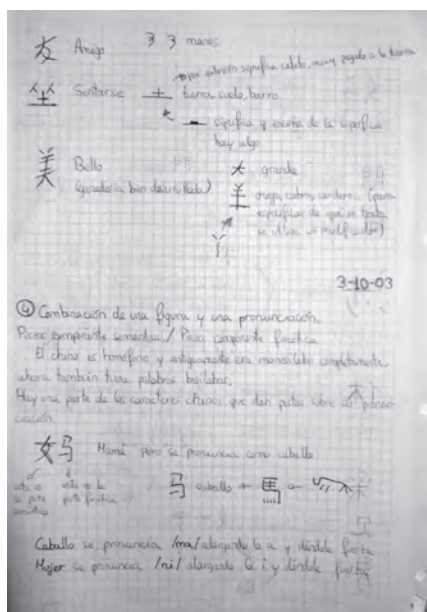 友 Amigo 3 3 manos
por extensión significa cabito, muy pegado a la tierra
坐 Sentarse 土 tierra, suelo, barro
significa q encima de la superficie
hay algo
美 Bello 大 grande
(ganadería bien desarrollada) 羊 oveja, cabra, cordero (para
especificar de que se trata
se utiliza un modificador)
3-10-03
④ Combinación de una figura y una pronunciación.
Pieza componente semántica / Pieza componente fonética
El chino es homófono y antiguamente era monosílabo completamente
ahora también tiene palabras bisílabas.
Hay una parte de los caracteres chinos que dan pistas sobre su pronun-
ciación.
女马 Mamá pero se pronuncia como caballo
esta es la parte semántica
esta es la parte fonética
马 caballo ← 馬 ←
Caballo se pronuncia /ma/ alargando la a y dándole fuerza
Mujer se pronuncia /ni/ alargando la i y dándole fuerza